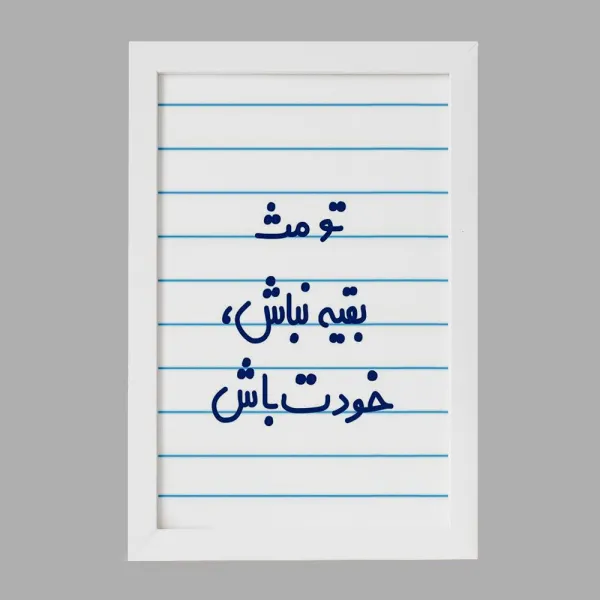 تو مث
بقیه نباش،
خودت باش